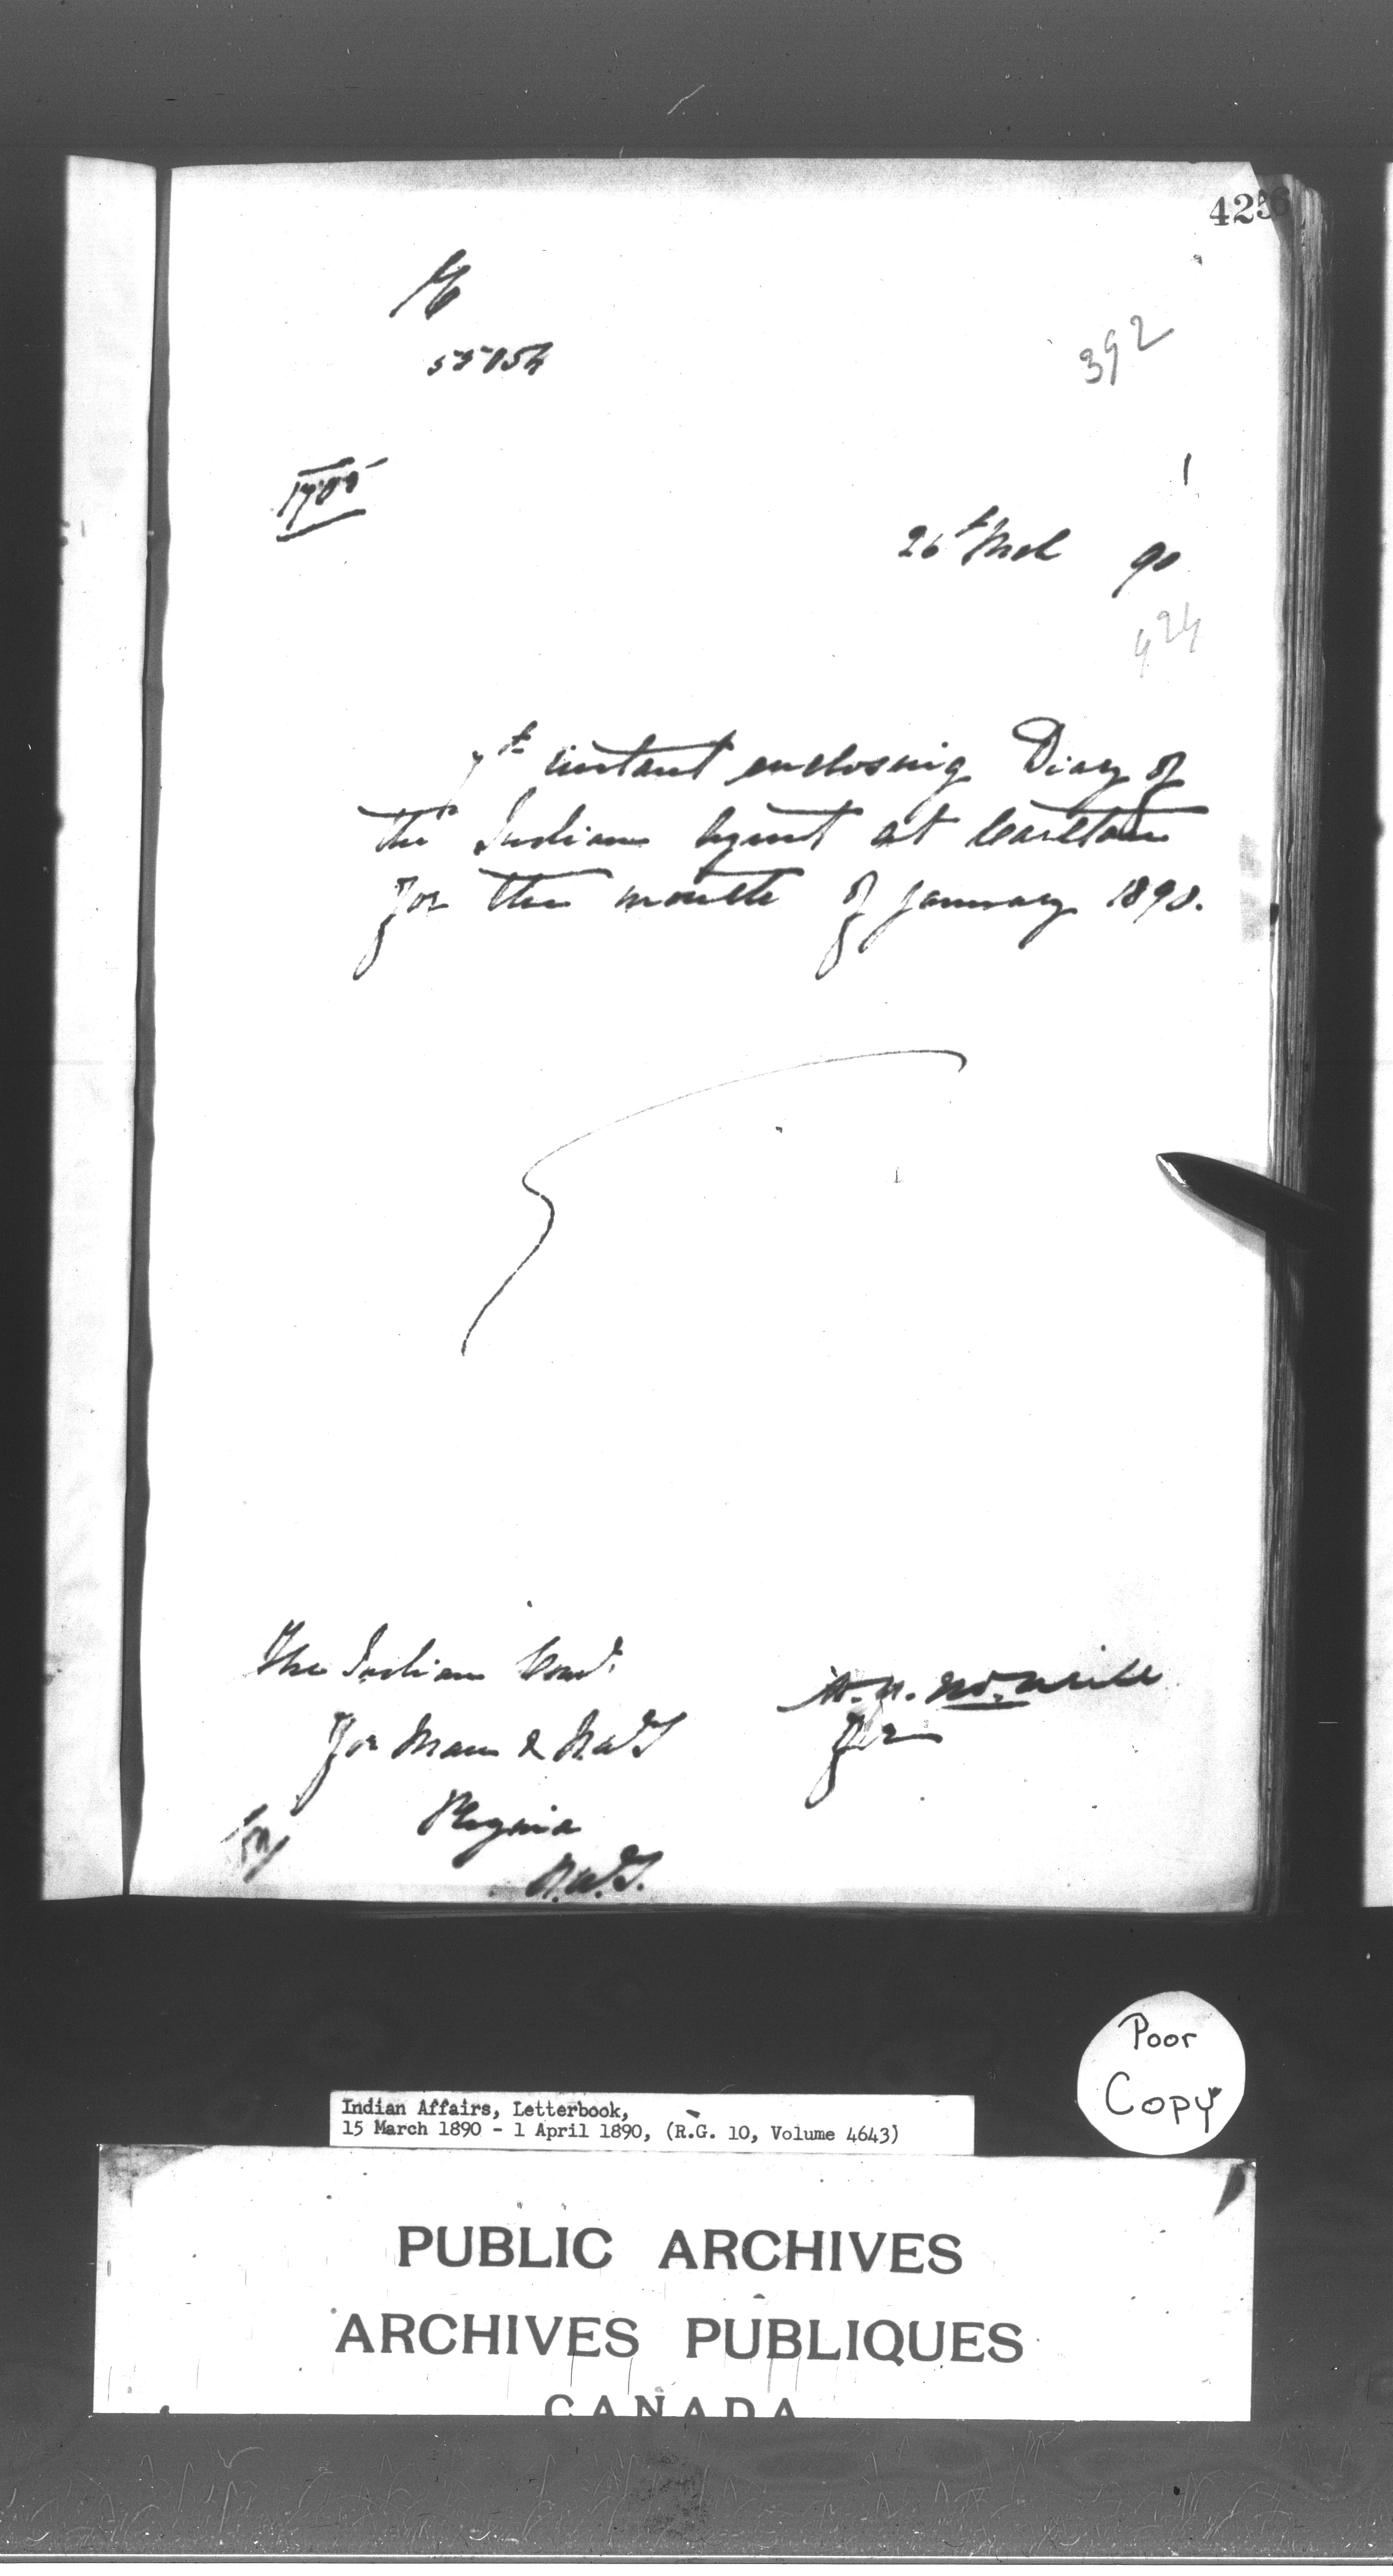 425
392
1705
26th Mch 90
424
7th instant enclosing Diary of
the Indian Agent at Carlton
for the month of January 1890.
The Indian Comr.
for Man & N.W.T
Regina
N.W.T.
for
Poor
Copy
Indian Affairs, Letterbook,
15 March 1890 - 1 April 1890, (R.G. 10, Volume 4643)
PUBLIC ARCHIVES
ARCHIVES PUBLIQUES
CANADA